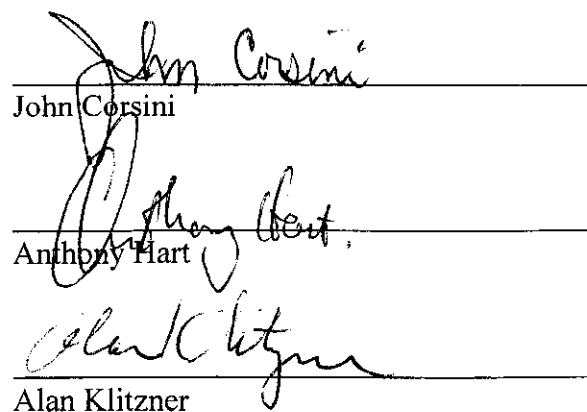 John Corsini
John Corsini
Anthony Hart.
Anthony Hart
Alan Klitzner
Alan Klitzner